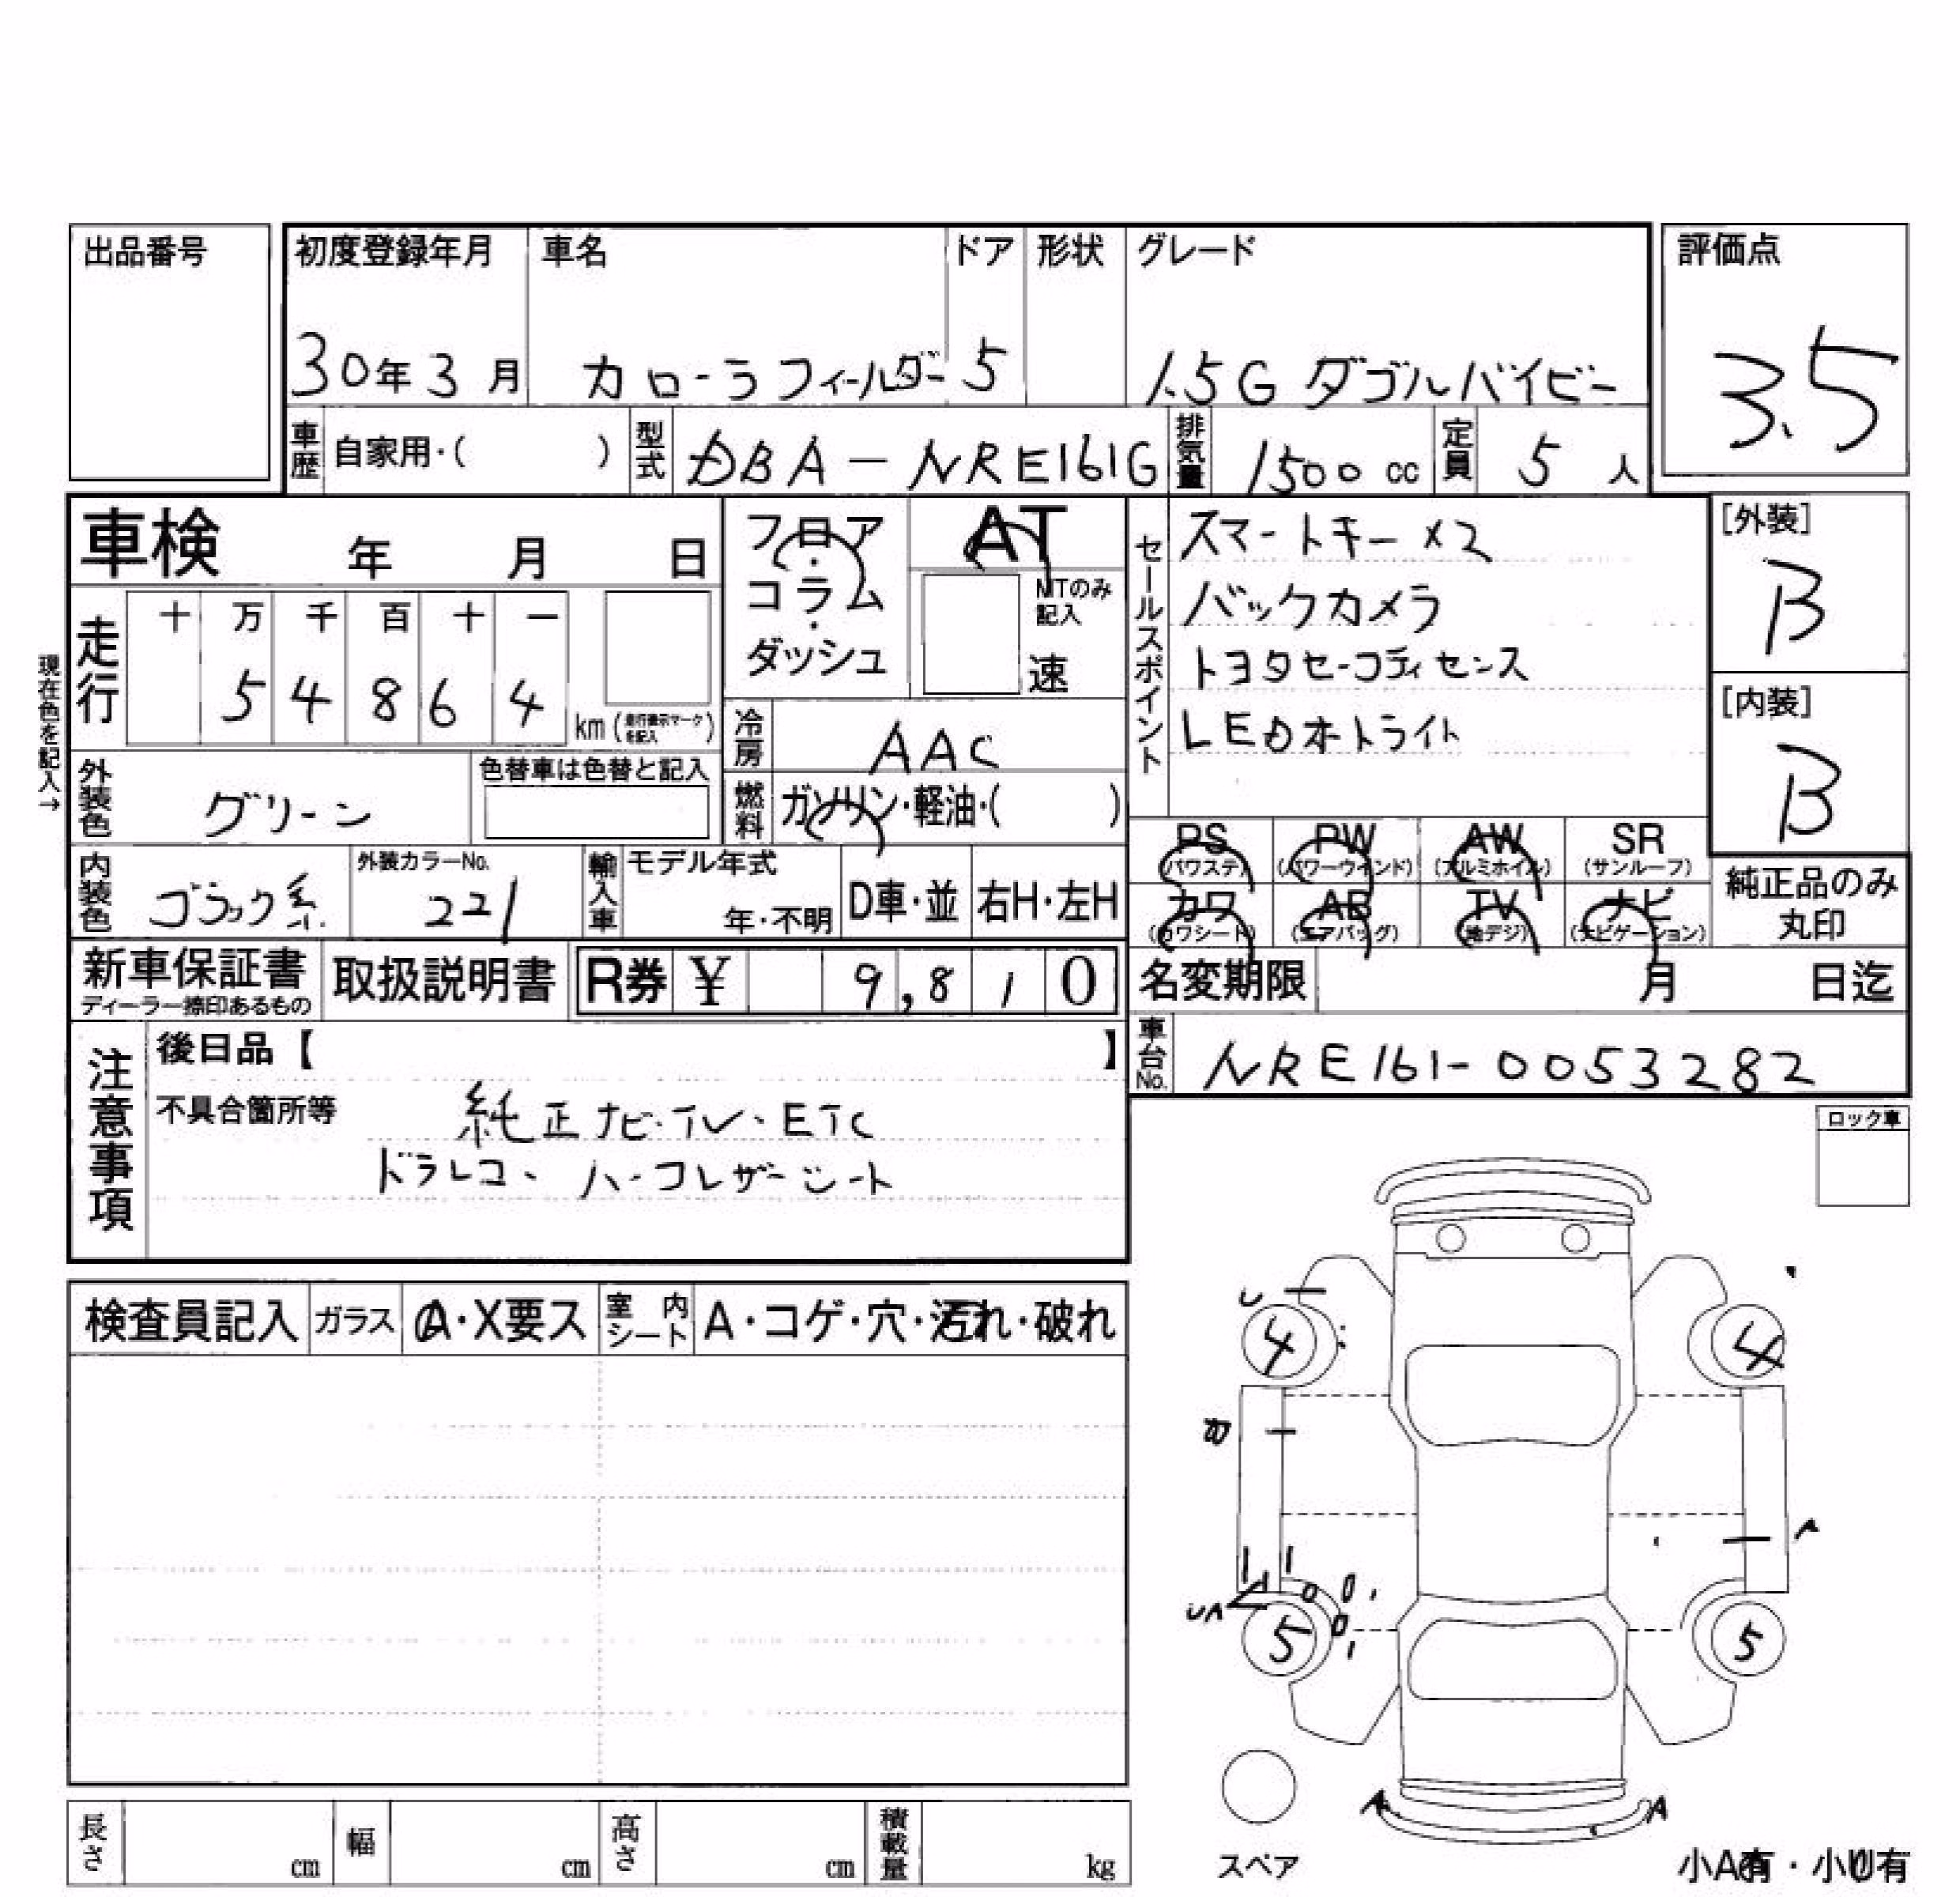 出品番号
初度登録年月 車名 ドア 形状 グレード 評価点
30年3月 カローラフィールダー 5 1.5G ダブルバイビー 3.5
車歴 自家用・( ) 型式 DBA-NRE161G 排気量 1500cc 定員 5人
車検 年 月 日
フロア・コラム・ダッシュ
AT
MTのみ記入
速
セールスポイント
スマートキー×2
バックカメラ
トヨタセーフティセンス
LEDホトライト
[外装]
B
[内装]
B
現在色を記入→
走行 十 万 千 百 十 一
5 4 8 6 4
km (走行表示マークを記入)
冷房 AAC
外装色 グリーン 色替車は色替と記入
燃料 ガソリン・軽油・( )
PS (パワステ) PW (パワーウィンド) AW (アルミホイル) SR (サンルーフ)
カワ (カワシート) AB (エアバッグ) TV (地デジ) ナビ (ナビゲーション)
純正品のみ
丸印
内装色 ブラック系 外装カラーNo. 221 輸入車 モデル年式 年・不明 D車・並 右H・左H
新車保証書 ディーラー捺印あるもの 取扱説明書 R券 ¥ 9,810
名変期限 月 日迄
車台No. NRE161-0053282
注意事項
後日品【 】
不具合箇所等 純正ナビ・TV・ETC
ドラレコ・ハーフレザーシート
ロック車
検査員記入 ガラス A・X要ス 室内シート A・コゲ・穴・汚れ・破れ
U
4 4
B
A
UA
5 5
A A
スペア
小A有・小U有
長さ cm 幅 cm 高さ cm 積載量 kg